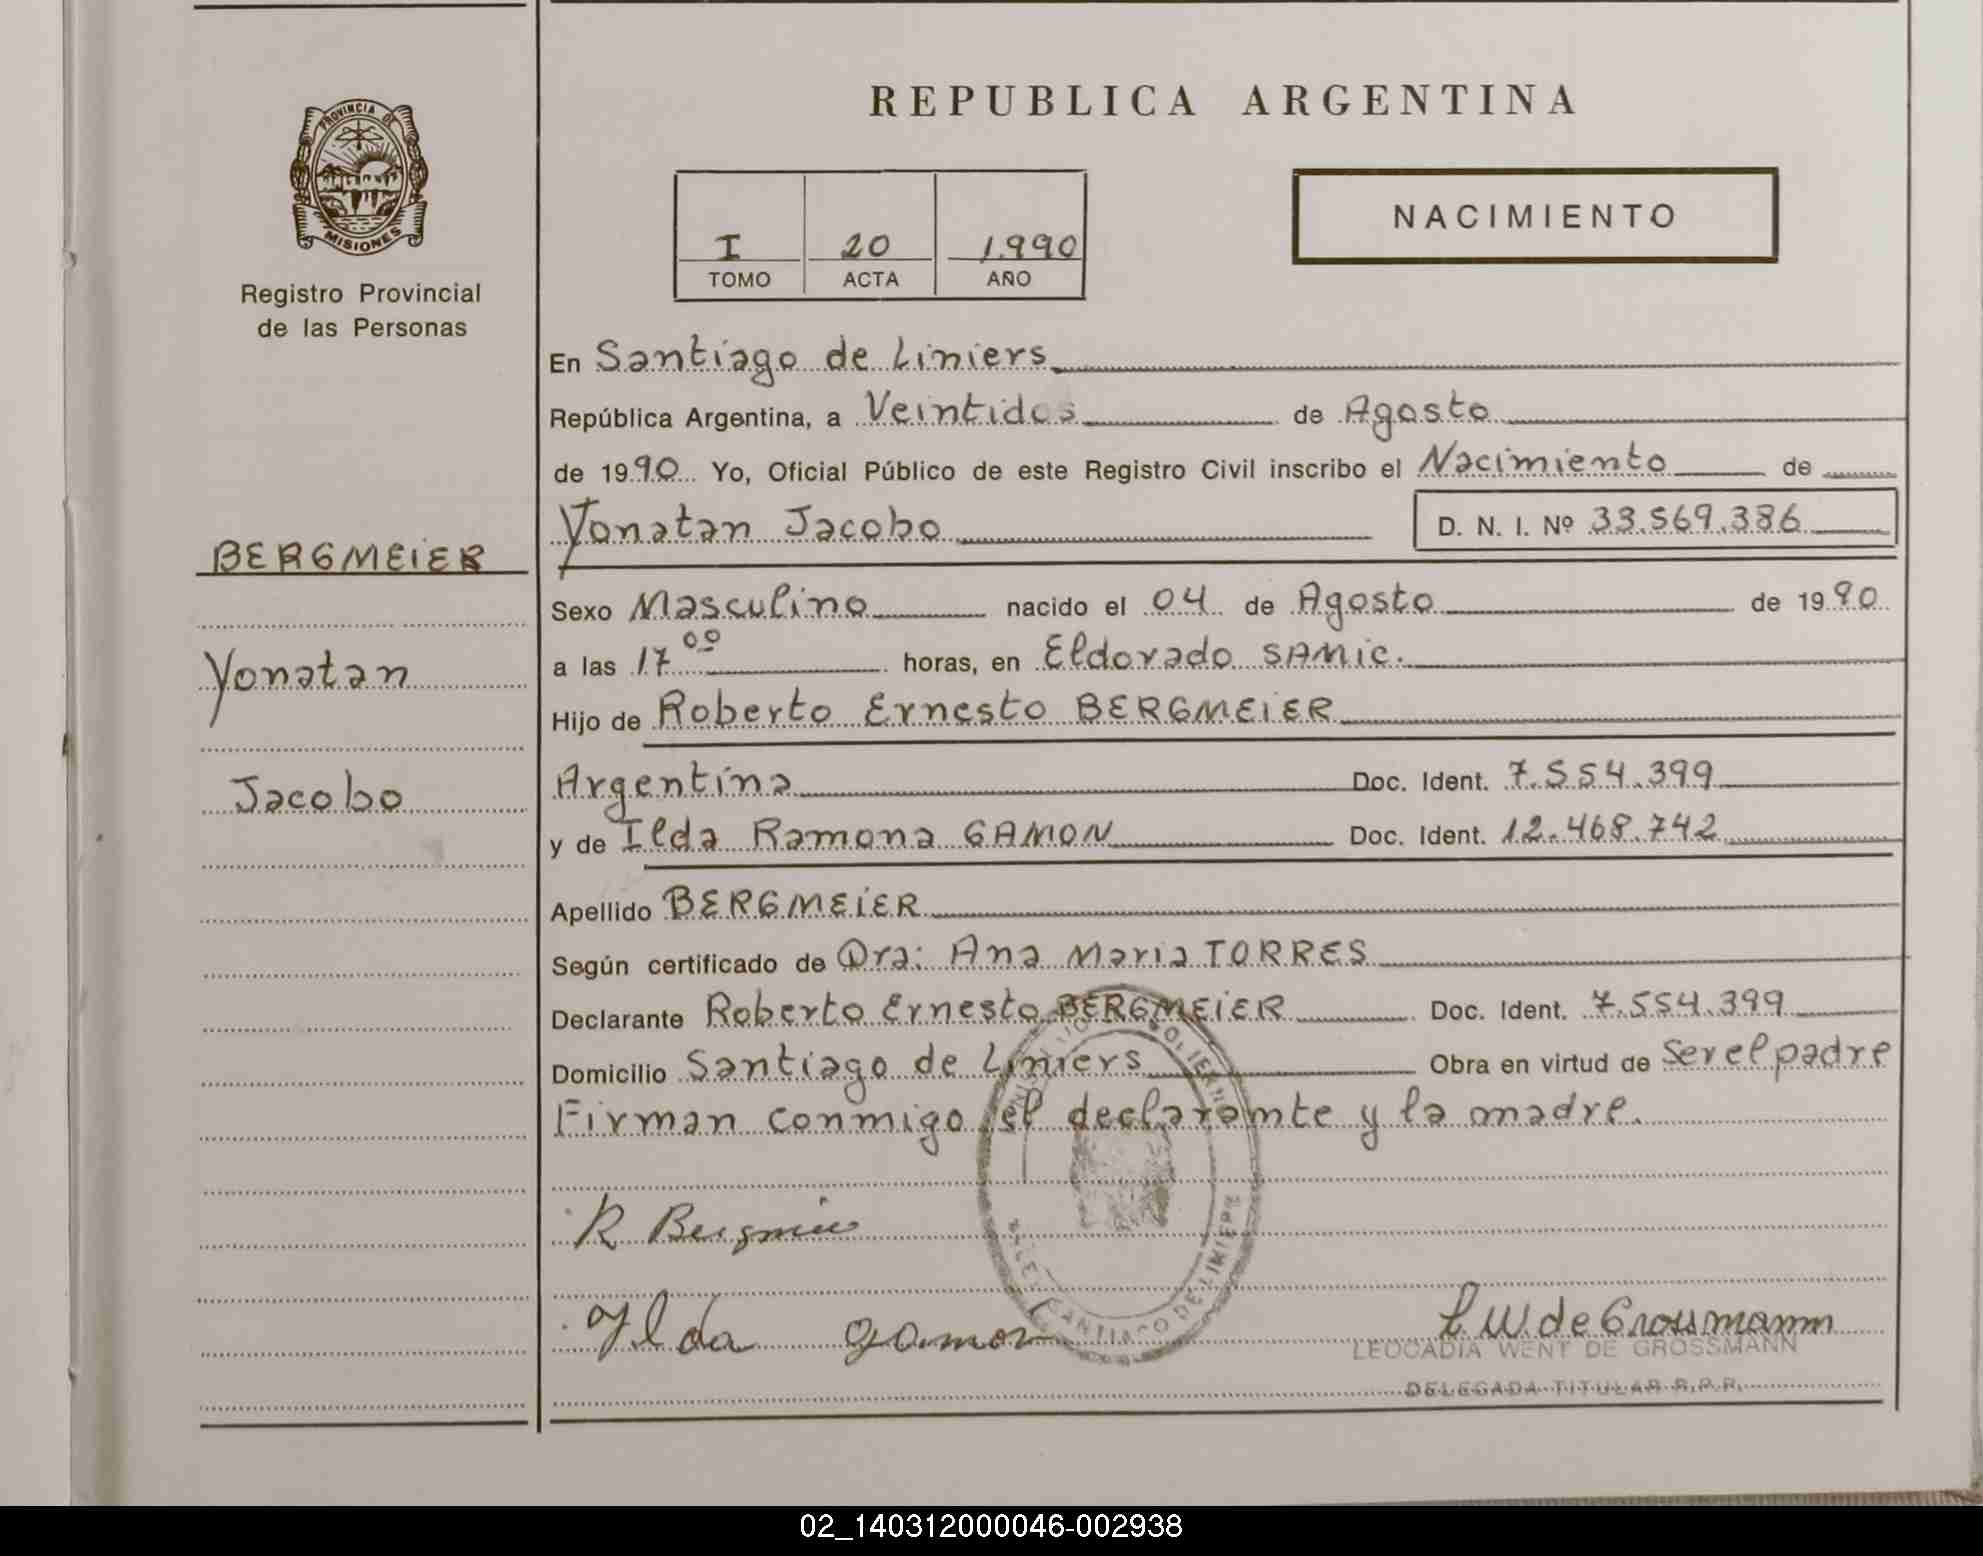 PROVINCIA DE
MISIONES
Registro Provincial
de las Personas
BERGMEIER
Yonatan
Jacobo
REPUBLICA ARGENTINA
I 20 1.990
TOMO ACTA AÑO
NACIMIENTO
En Santiago de Liniers
República Argentina, a Veintidos de Agosto
de 1990 Yo, Oficial Público de este Registro Civil inscribo el Nacimiento de
Yonatan Jacobo D. N. I. Nº 33.569.386
Sexo Masculino nacido el 04 de Agosto de 1990
a las 17 00 horas, en Eldorado SAMic.
Hijo de Roberto Ernesto BERGMEIER
Argentina Doc. Ident. 7.554.399
y de Ilda Ramona GAMON Doc. Ident. 12.468.742
Apellido BERGMEIER
Según certificado de Dra: Ana Maria TORRES
Declarante Roberto Ernesto BERGMEIER Doc. Ident. 7.554.399
Domicilio Santiago de Liniers Obra en virtud de Ser el padre
Firman conmigo el declarante y la madre.
R Bergmeier
Ylda gamon
SANTIAGO DE LINIERS
L W. de Grossmann
LEOCADIA WENT DE GROSSMANN
DELEGADA TITULAR R.P.P.
02_140312000046-002938